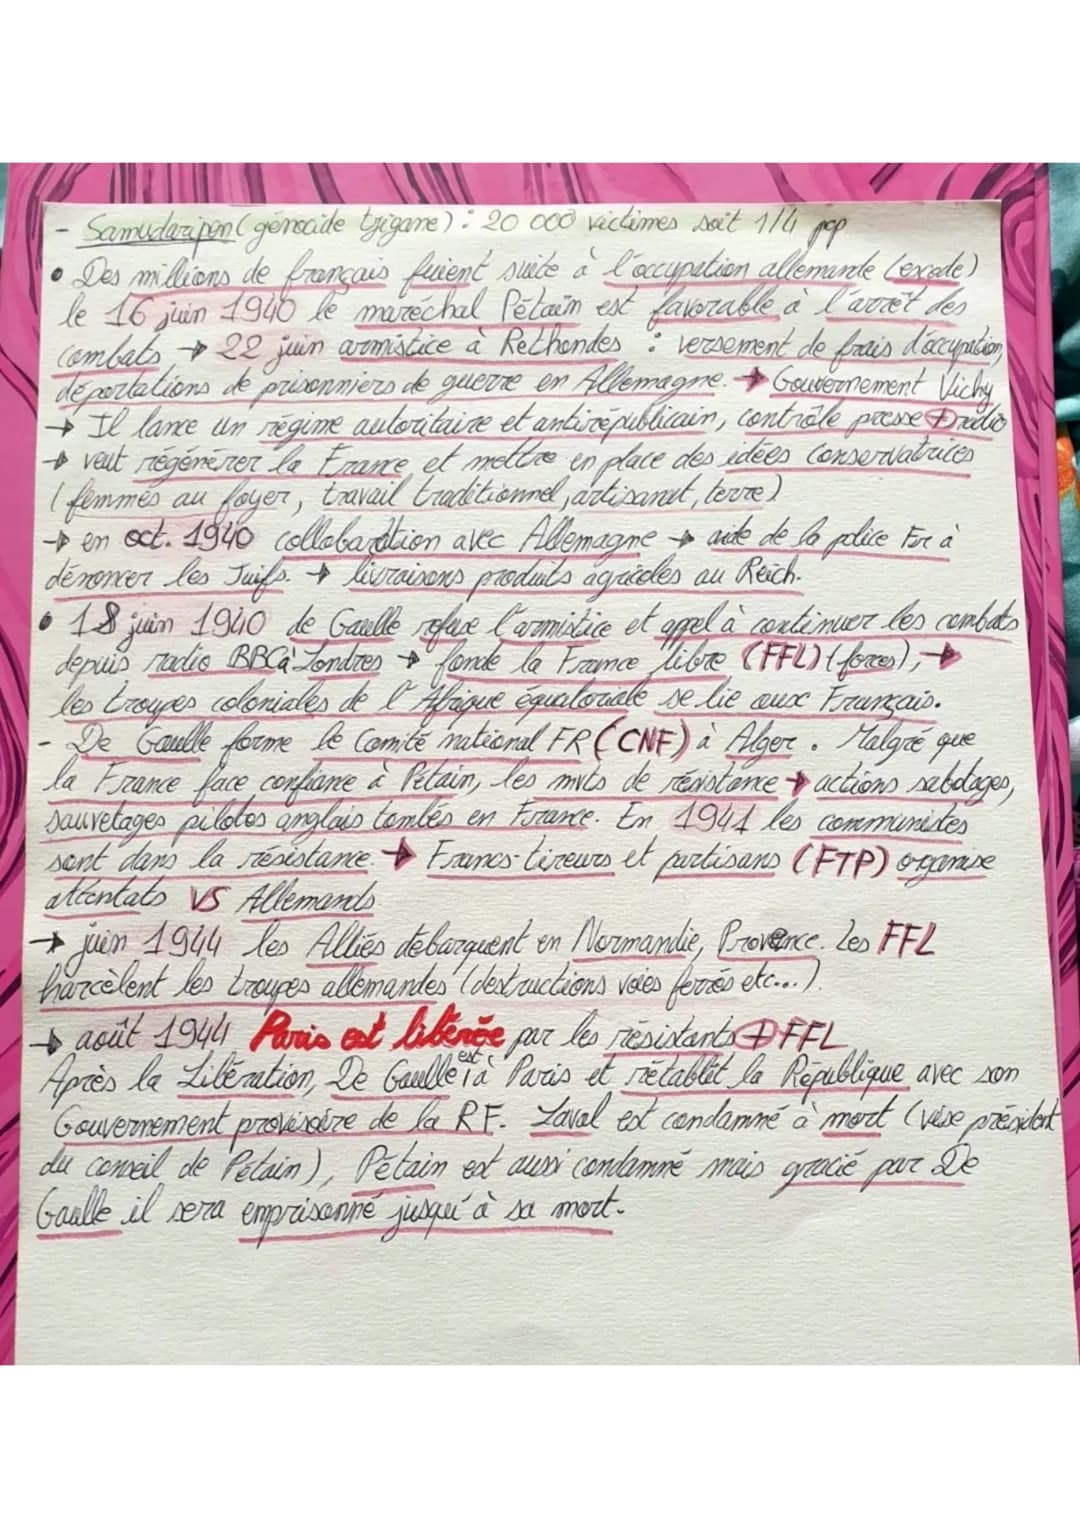 - Samudaripen (génocide tzigane) : 20 000 victimes soit 1/4 pop
• Des millions de français fuient suite à l'occupation allemande (exode)
le 16 juin 1940 le maréchal Pétain est favorable à l'arrêt des
combats → 22 juin armistice à Rethondes : versement de frais d'occupation,
déportations de prisonniers de guerre en Allemagne. → Gouvernement Vichy
→ Il lance un régime autoritaire et antirépublicain, contrôle presse + radio
→ veut régénérer la France et mettre en place des idées conservatrices
(femmes au foyer, travail traditionnel, artisanat, terre)
→ en oct. 1940 collaboration avec Allemagne → aide de la police Fr à
dénoncer les Juifs. → livraisons produits agricoles au Reich.
• 18 juin 1940 de Gaulle refuse l'armistice et appel à continuer les combats
depuis radio BBC à Londres → fonde la France libre (FFL) (forces), →
les troupes coloniales de l'Afrique équatoriale se lie aux Français.
- De Gaulle forme le Comité national FR (CNF) à Alger. Malgré que
la France face confiance à Pétain, les mvts de résistance → actions sabotages,
sauvetages pilotes anglais tombés en France. En 1941 les communistes
sont dans la résistance. → Francs-tireurs et partisans (FTP) organise
attentats VS Allemands
→ juin 1944 les Alliés débarquent en Normandie, Provence. Les FFL
harcèlent les troupes allemandes (destructions voies ferrés etc...).
→ août 1944 Paris est libérée par les résistants + FFL
Après la Libération, De Gaulle est à Paris et rétablit la République avec son
Gouvernement provisoire de la RF. Laval est condamné à mort (vise président
du conseil de Pétain), Pétain est aussi condamné mais gracié par De
Gaulle il sera emprisonné jusqu'à sa mort.